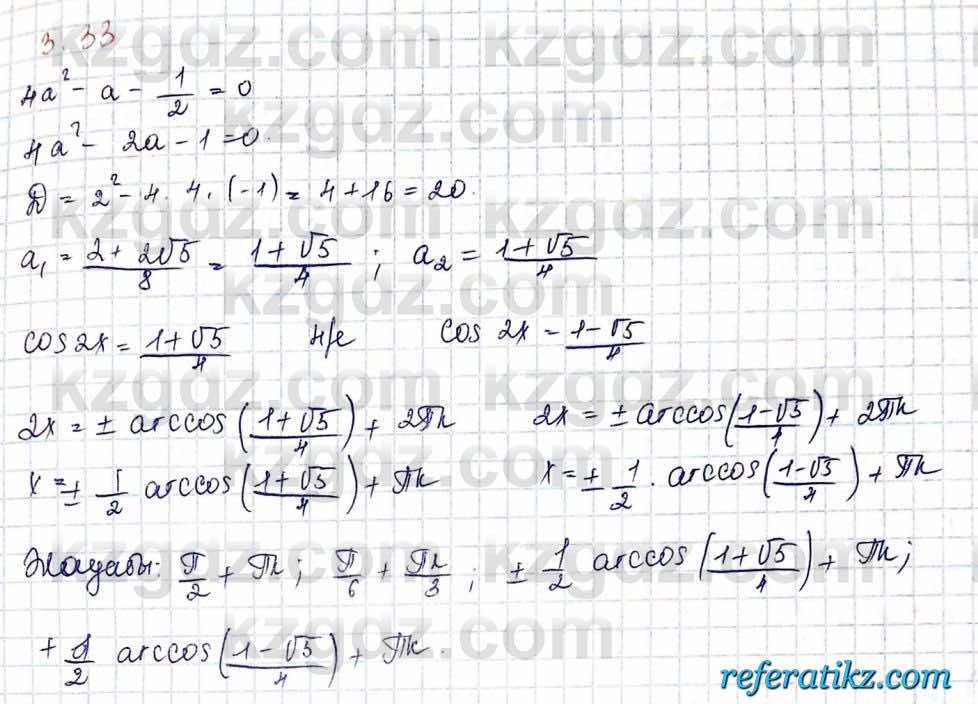 3.33
4a² - a - 1/2 = 0
4a² - 2a - 1 = 0.
D = 2² - 4 · 4 · (-1) = 4 + 16 = 20.
a₁ = (2 + 2√5)/8 = (1 + √5)/4 ; a₂ = (1 + √5)/4
cos 2x = (1 + √5)/4 н/е cos 2x = (1 - √5)/4
2x = ± arccos((1 + √5)/4) + 2πk 2x = ± arccos((1 - √5)/4) + 2πk
x = ± 1/2 arccos((1 + √5)/4) + πk x = ± 1/2 · arccos((1 - √5)/4) + πk
Жауабы: π/2 + πk; π/6 + πk/3; ± 1/2 arccos((1 + √5)/4) + πk;
± 1/2 arccos((1 - √5)/4) + πk.
kzgdz.com
kzgdz.com
kzgdz.com
kzgdz.com
kzgdz.com
kzgdz.com
kzgdz.com
kzgdz.com
referatikz.com